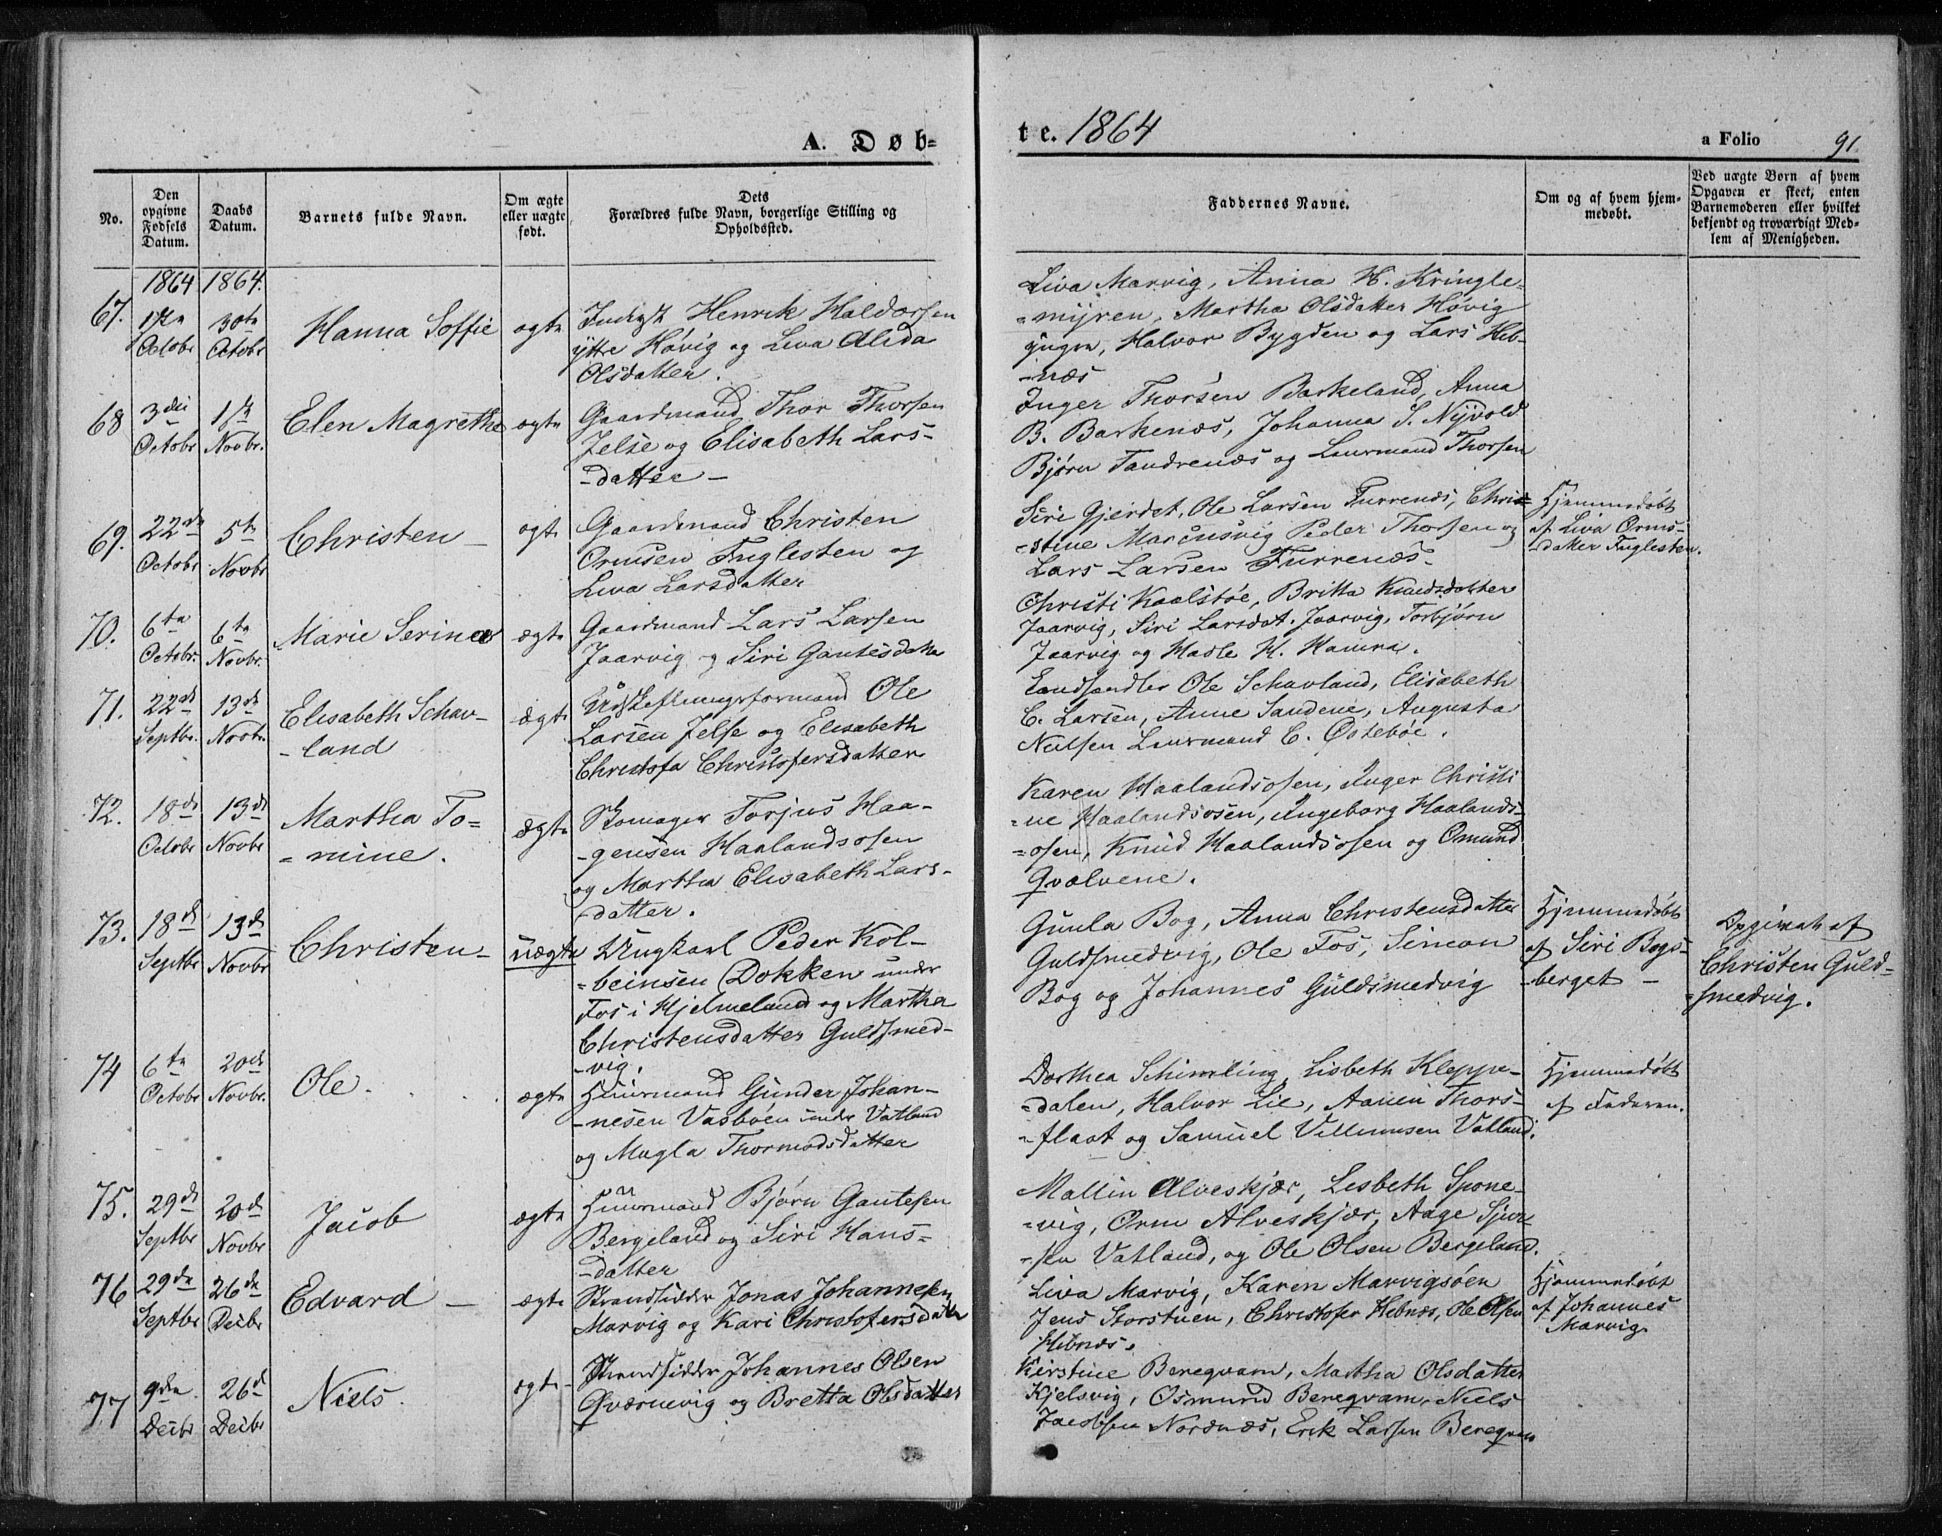 A. Døb-
te. 1864
a Folio 91
No.
Den opgivne Fødsels Datum.
Daabs Datum.
Barnets fulde Navn.
Om ægte eller uægte født.
Dets Forældres fulde Navn, borgerlige Stilling og Opholdssted.
Faddernes Navne.
Om og af hvem hjemmedøbt.
Ved uægte Børn af hvem Opgaven er skeet, enten Barnemoderen eller hvilket bekjendt og troværdigt Medlem af Menigheden.
1864 1864.
67.
Octobr
30te Octobr
Hanna Soffie
ægte
Henrik Haldorsen
ytre Høvig og Liva Alida
Olsdatter.
Liva Marvig, Anna H. Kringle-
=myren, Martha Olsdatter Høvig
yngre, Halvor Bygden og Lars Heb-
-næs
68
3die Octobr
1ste Novbr.
Elen Magrethe
ægte
Gaardmand Thor Thorsen
Jelse og Elisabeth Lars-
-datter -
Inger Thorsen Barkeland, Anna
B. Barkenæs, Johanna S. Nyvold
Bjørn Tandrenæs og Leurmand Thorsen
69.
22de Octobr
5te Novbr
Christen -
ægte
Gaardmand Christen
Ormsen Fuglesten og
Liva Larsdatter
Siri Gjerdet, Ole Larsen Furrenæs, Chri-
-stine Marcusvig Peder Thorsen og
Lars Larsen Furrenæs.
Hjemmedøbt
af Liva Orms-
-datter Fuglesten.
70.
6te Octobr.
6te Novbr.
Marie Serine
ægte
Gaardmand Lars Larsen
Jaarvig og Siri Gautesdatter
Christi Kaalstøe, Britta Knudsdatter
Jaarvig, Siri Larsdat. Jaarvig, Torbjørn
Jaarvig og Hasle H. Hamra.
71.
22de Septbr.
13de Novbr.
Elisabeth Schav-
-land
ægte
Udskeftningsformand Ole
Larsen Jelse og Elisabeth
Christofa Christofersdatter
Landhandler Ole Schavland, Elisabeth
C. Larsen, Anne Sandene, Augusta
Nielsen Leurmand E. Østebøe.
72.
18de Octobr
13de Novbr
Martha To-
=mine.
ægte
Skomager Torjus Haa-
-gensen Haalandsosen
og Martha Elisabeth Lars-
datter.
Karen Haalandsosen, Inger Christi
=ne Haalandsosen, Ingeborg Haalands-
=osen, Knud Haalandsosen og Omund
Qvælvene.
73.
18de Septbr
13de Novbr
Christen -
uægte
Ungkarl Peder Kol-
-beinsen Dokken under
Fos i Hjelmeland og Martha
Christensdatter Guldsmed-
-vig.
Gunla Bog, Anna Christensdatter
Guldsmedvig, Ole Fos, Simon
Bog og Johannes Guldsmedvig
Hjemmedøbt
af Siri Bogs-
-berget -
Opgivet af
Christen Guld-
=smedvig.
74
6te Octobr
20de Novbr.
Ole.
ægte
Huusmand Gunder Johan-
-nesen Vasboen under Vatland
og Magla Thormodsdatter
Dorthea Schimling, Lisbeth Kleppe-
-dalen, Halvor Lie, Aanen Thors-
-flaat og Samuel Villumsen Vatland.
Hjemmedøbt
af Faderen.
75.
29de Septbr
20de Novbr
Jacob
ægte
Huusmand Bjørn Gautesen
Bergeland og Siri Hans-
-datter
Mallin Alveskjær, Lisbeth Spone-
-vig, Orm Alveskjær, Aage Sjur-
-sen Vatland, og Ole Olsen Bergeland.
76
29de Septbr
26de Decbr
Edvard -
ægte
Strandsidder Jonas Johannesen
Marvig og Kari Christofersdatter
Liva Marvig, Karen Marvigsøen
Jens Storstuen, Christofer Hebnæs, Ole Olsen
Hebnæs.
Hjemmedøbt
af Johannes
Marvig
77
9de Decbr
26de Decbr
Niels.
ægte -
Strandsidder Johannes Olsen
Qværnevig og Bretta Olsdatter
Kirstine Bereqvam, Martha Olsdatter
Kjelsvig, Osmund Bereqvam, Niels
Jacobsen Nordnæs, Erik Larsen Bereqvam